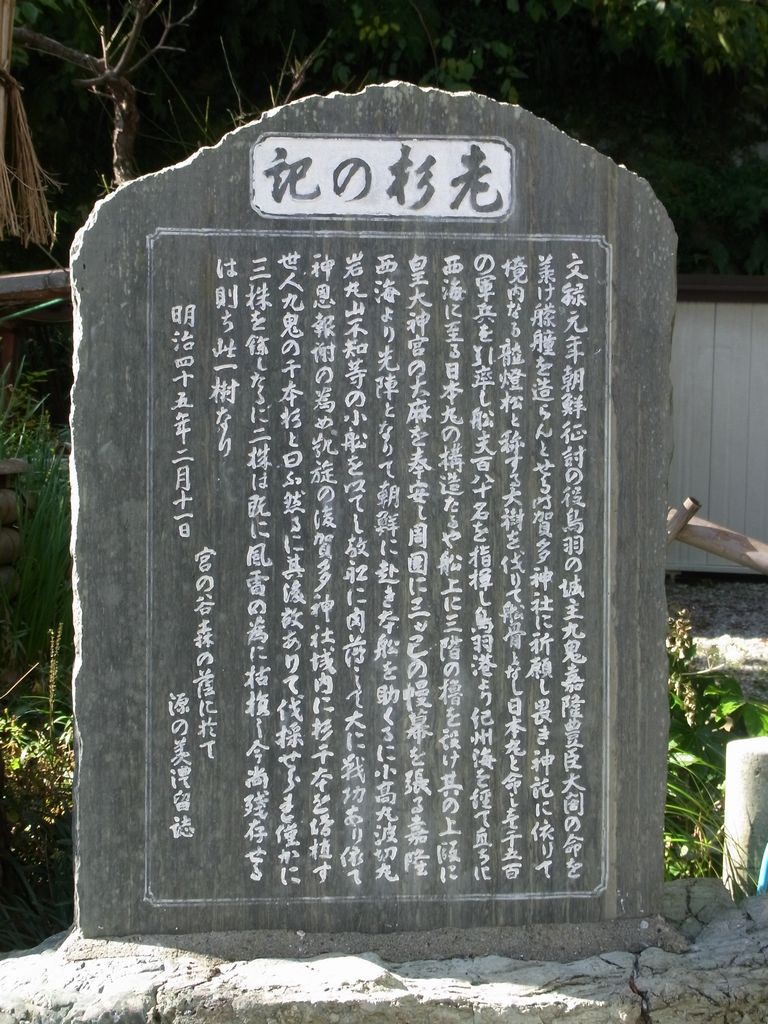 老杉の記
文禄元年朝鮮征討の役鳥羽の城主九鬼嘉隆豊臣大閤の命を
羕け艨艟を造らんとせる時賀多神社に祈願し畏き神託に依りて
境内なる龍燈松と称する大樹を伐りて船骨となし日本丸と命し壱千五百
の軍兵を引率し船夫百八十名を指揮し鳥羽港より紀州海を経て直ちに
西海に至る日本丸の構造たるや船上に三階の櫓を設け其の上段に
皇大神宮の大麻を奉安し周囲に三ッ巴の幔幕を張る嘉隆
西海より先陣となりて朝鮮に赴き本船を助くるに小髙丸波切丸
岩丸山不知等の小船を以てし敵船に肉薄して大に戦功あり依て
神恩報謝の為め凱旋の後賀多神社域内に杉千本を増植す
世人九鬼の千本杉と曰ふ然るに其後故ありて伐採せられ僅かに
三株を餘したるに二株は既に風雷の為に枯損し今尚残存せる
は則ち此一樹なり
明治四十五年二月十一日
宮の谷森の蔭に於て
源の美澧留誌